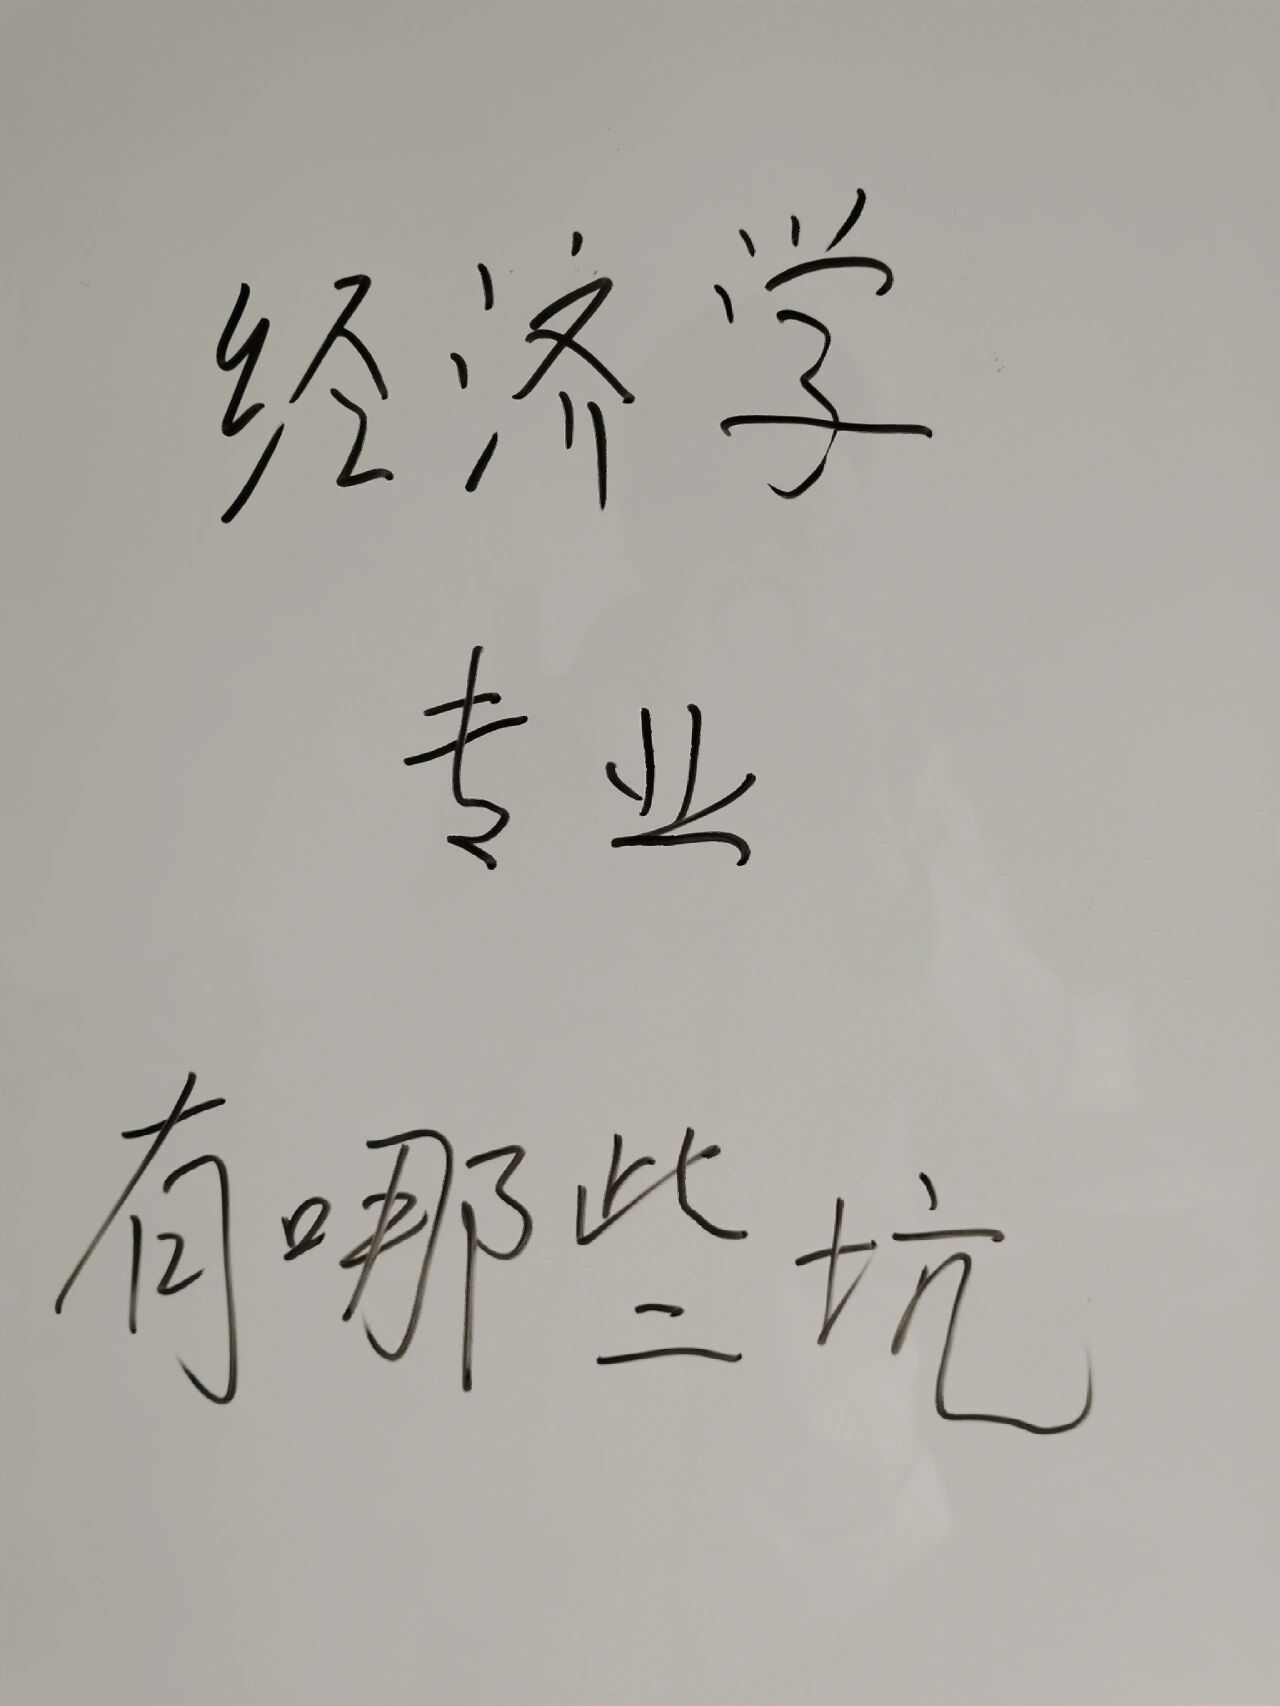 经济学
专业
有哪些坑